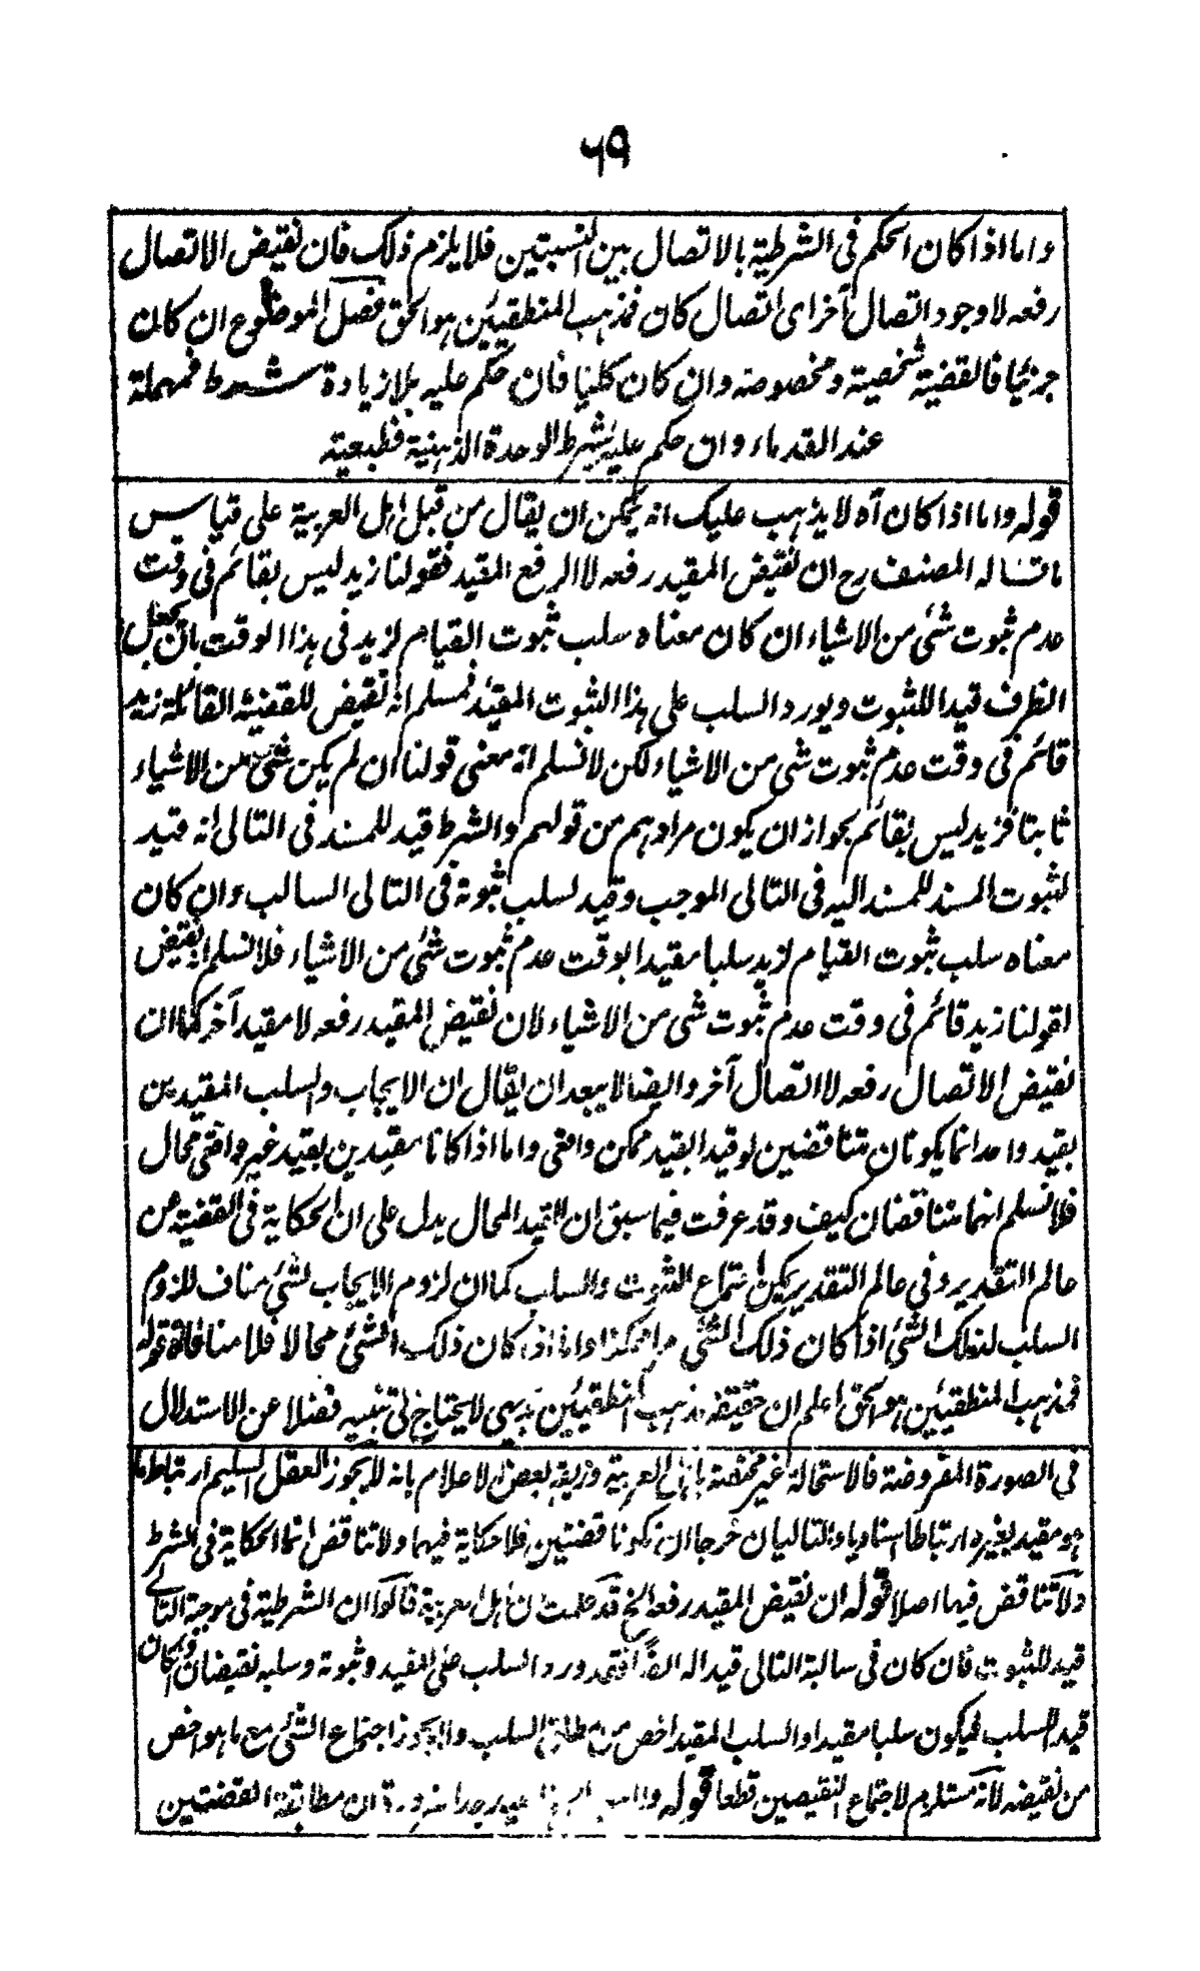 ٦٩
واما اذا كان الحكم فى الشرطية بالاتصال بين النسبتين فلا يلزم ذلك فان نقيض الاتصال
رفعه لا وجود اتصال آخر اى اتصال كان فمذهب المنطقيين هو الحق فصل الموضوع ان كان
جزئيا فالقضية شخصية ومخصوصة وان كان كليا فان حكم عليه بلا زيادة شرط فمهملة
عند القدماء وان حكم عليه بشرط الوحدة الذهنية فطبعية
قوله واما اذا كان آه لا يذهب عليك انه يمكن ان يقال من قبل اهل العربية على قياس
ما قاله المصنف رح ان نقيض المقيد رفعه لا الرفع المقيد فقولنا زيد ليس بقائم فى وقت
عدم ثبوت شئ من الاشياء ان كان معناه سلب ثبوت القيام لزيد فى هذا الوقت بان يجعل
الظرف قيدا للثبوت ويورد السلب على هذا الثبوت المقيد فمسلم انه نقيض للقضية القائلة زيد
قائم فى وقت عدم ثبوت شئ من الاشياء لكن لا نسلم انه معنى قولنا ان لم يكن شئ من الاشياء
ثابتا فزيد ليس بقائم بجواز ان يكون مرادهم من قولهم والشرط قيد للمسند فى التالى انه قيد
لثبوت المسند للمسند اليه فى التالى الموجب وقيد لسلب ثبوته فى التالى السالب وان كان
معناه سلب ثبوت القيام لزيد سلبا مقيدا بوقت عدم ثبوت شئ من الاشياء فلا نسلم انه نقيض
لقولنا زيد قائم فى وقت عدم ثبوت شئ من الاشياء لان نقيض المقيد رفعه لا مقيد آخر كما ان
نقيض الاتصال رفعه لا اتصال آخر وايضا لا يبعد ان يقال ان الايجاب والسلب المقيدين
بقيد واحد انما يكونان متناقضين لو قيدا بقيد ممكن واقعى واما اذا كانا مقيدين بقيد غير واقعى محال
فلا نسلم انهما متناقضان كيف وقد عرفت فيما سبق ان القيد المحال يدل على ان الحكاية فى القضية عن
عالم التقدير وفى عالم التقدير يمكن اجتماع الثبوت والسلب كما ان لزوم الايجاب لشئ مناف للزوم
السلب لذلك الشئ اذا كان ذلك الشئ ممكنا واما اذا كان ذلك الشئ محالا فلا منافاة قوله
فمذهب المنطقيين هو الحق اعلم ان حقيقة مذهب المنطقيين بديهى لا يحتاج الى تنبيه فضلا عن الاستدلال
فى الصورة المفروضة فالاستحالة غير مختصة باهل العربية وزيفه بعض الاعلام بانه لا يجوز العقل السليم ارتباط ما
هو مقيد بغيره ارتباطا اسناديا والتاليان خرجا ان تكونا قضيتين فلا حكاية فيهما ولا تناقض انما الحكاية فى الشرط
ولا تناقض فيها اصلا قوله ان نقيض المقيد رفعه الخ قد علمت ان اهل العربية قالوا ان الشرطية فى موجبة التالى
قيد للثبوت فان كان فى سالبة التالى قيدا له ايضا فقد ورد السلب على المقيد وثبوته وسلبه نقيضان وان كان
قيد السلب فيكون سلبا مقيدا والسلب المقيد اخص من مطلق السلب ولا يجوز اجتماع الشئ مع ما هو اخص
من نقيضه لانه مستلزم لاجتماع النقيضين قطعا قوله ان مطابقة القضيتين